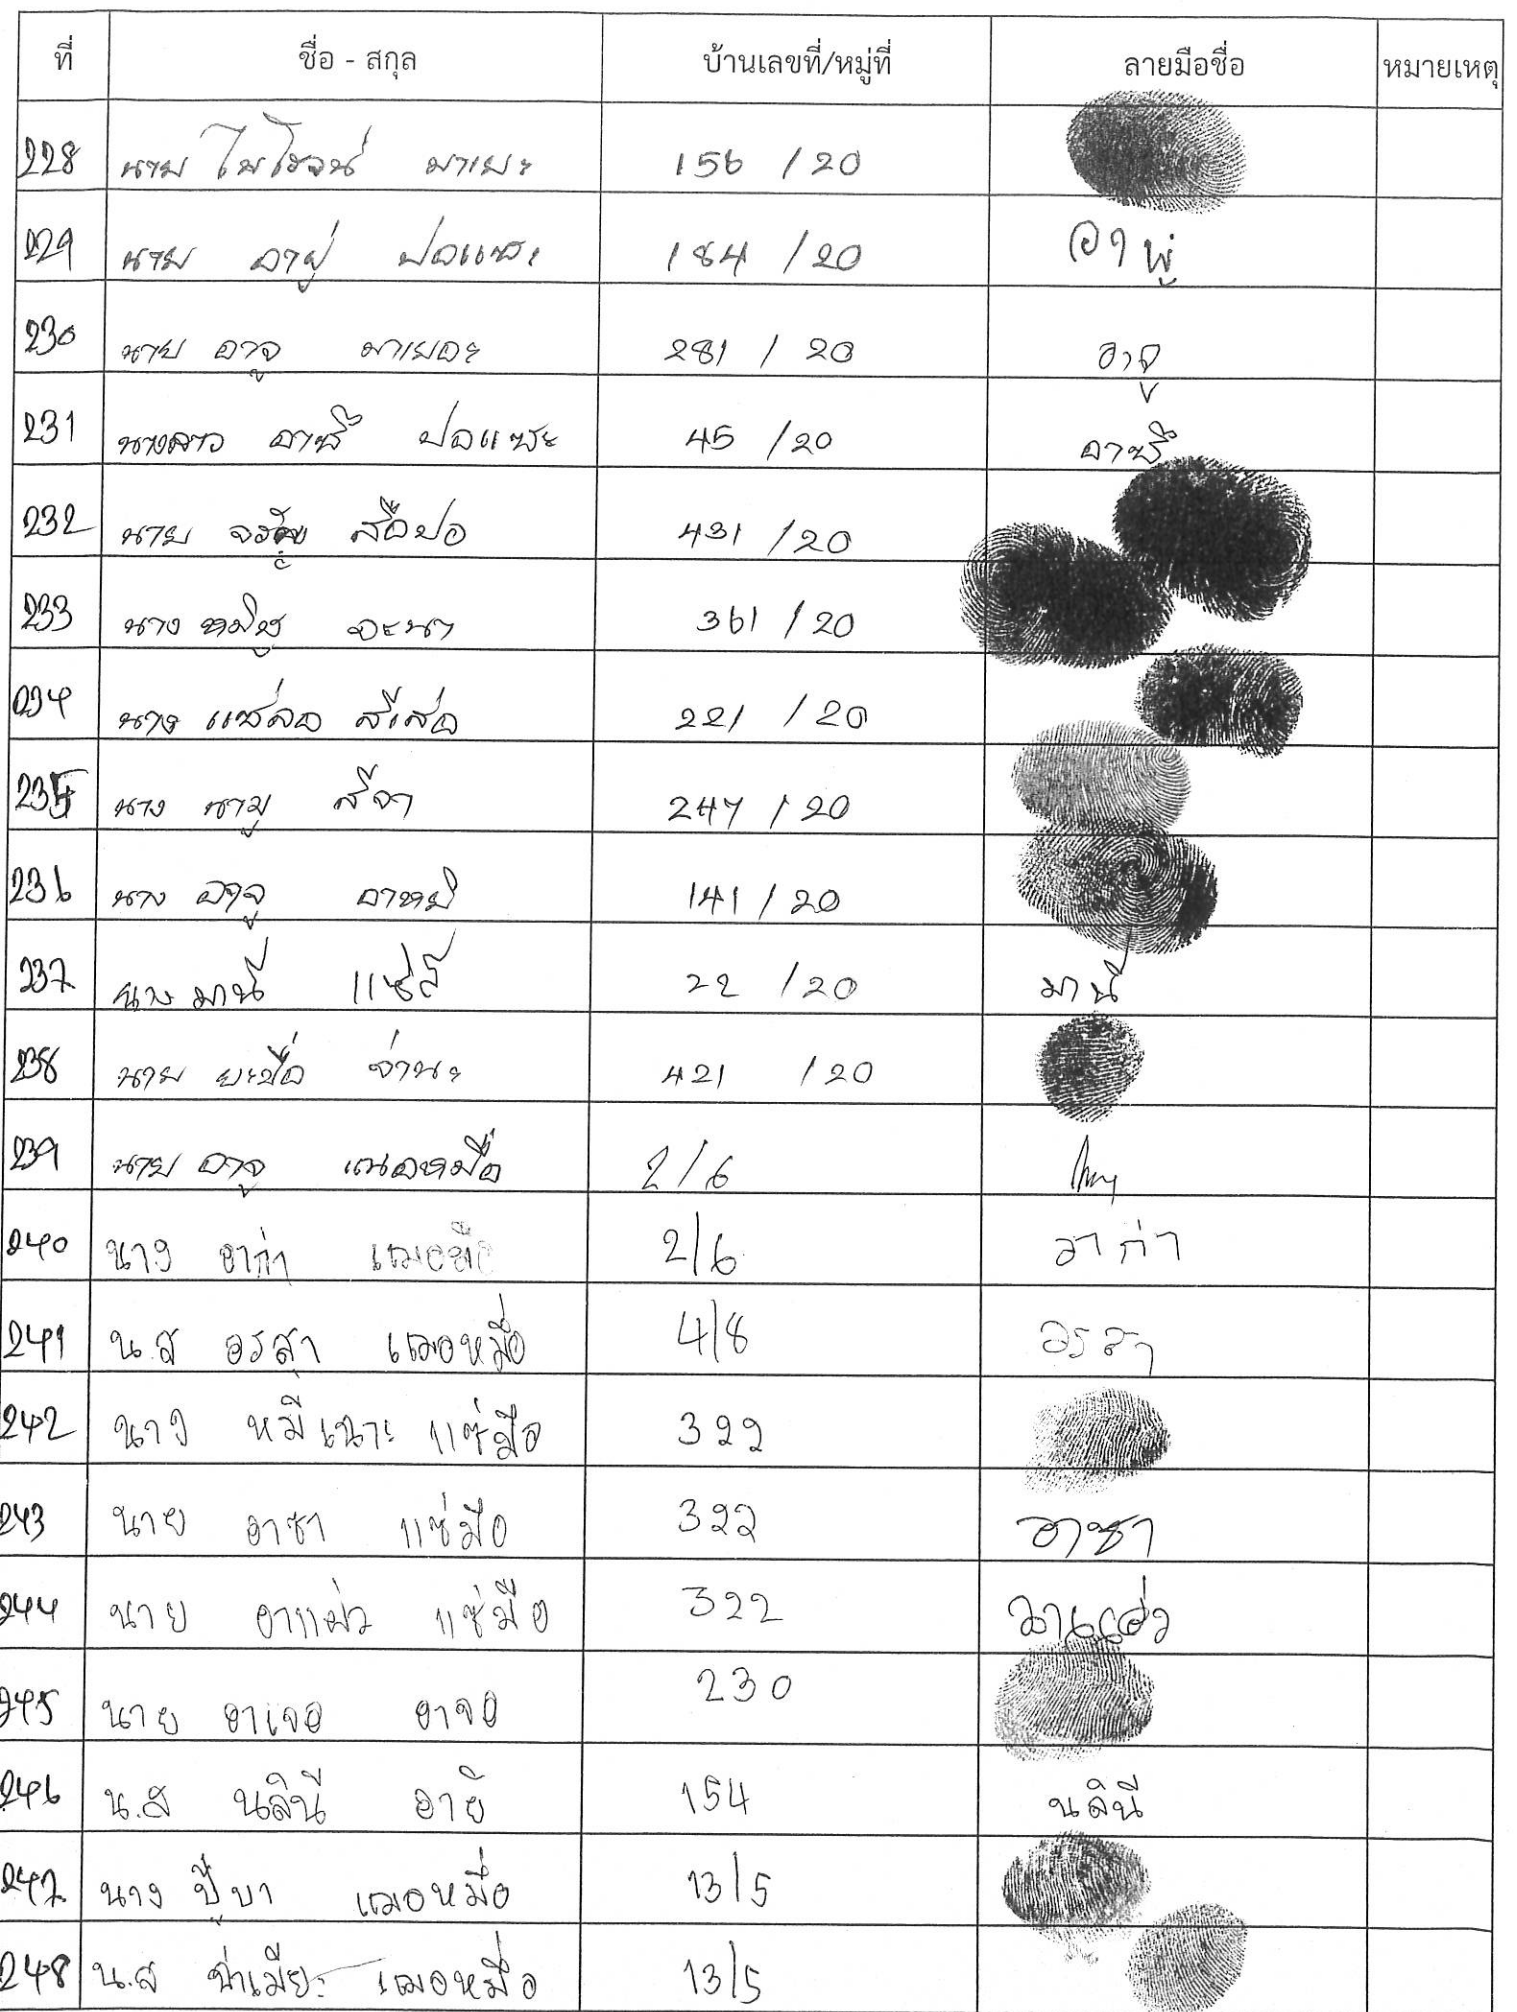 ที่ ชื่อ - สกุล บ้านเลขที่/หมู่ที่ ลายมือชื่อ หมายเหตุ
228 นาย ไพโรจน์ มาเยะ 156 /20
229 นาย อายู่ ปอแซะ 184 /20
230 นาย อาจู มาเยอะ 281 / 20 อาจู
231 นางสาว อาซี ปอแซะ 45 /20 อาซี
232 นาย สือปอ 431 /20
233 นาง จะนา 361 /20
234 นาง 221 /20
235 นาง นามู สีจา 247 / 20
236 นาง อาจู อาหยี 141 / 20
237 นาง มานี แซ่ลี 22 /20 มานี
238 นาย จ่านะ 421 /20
239 นาย อาจู เฌอหมื่อ 2/6
240 นาง อาก่า 2/6 อาก่า
241 น.ส อรสา เฌอหมื่อ 4/8 อรสา
242 นาง หมี่เนาะ แซ่มือ 322
243 นาย อาซา แซ่มือ 322 อาซา
244 นาย แซ่มือ 322
245 นาย อาเจอ อาจอ 230
246 น.ส นลินี อายิ 154 นลินี
247 นาง บู๊บา เฌอหมื่อ 13/5
248 น.ส เฌอหมื่อ 13/5